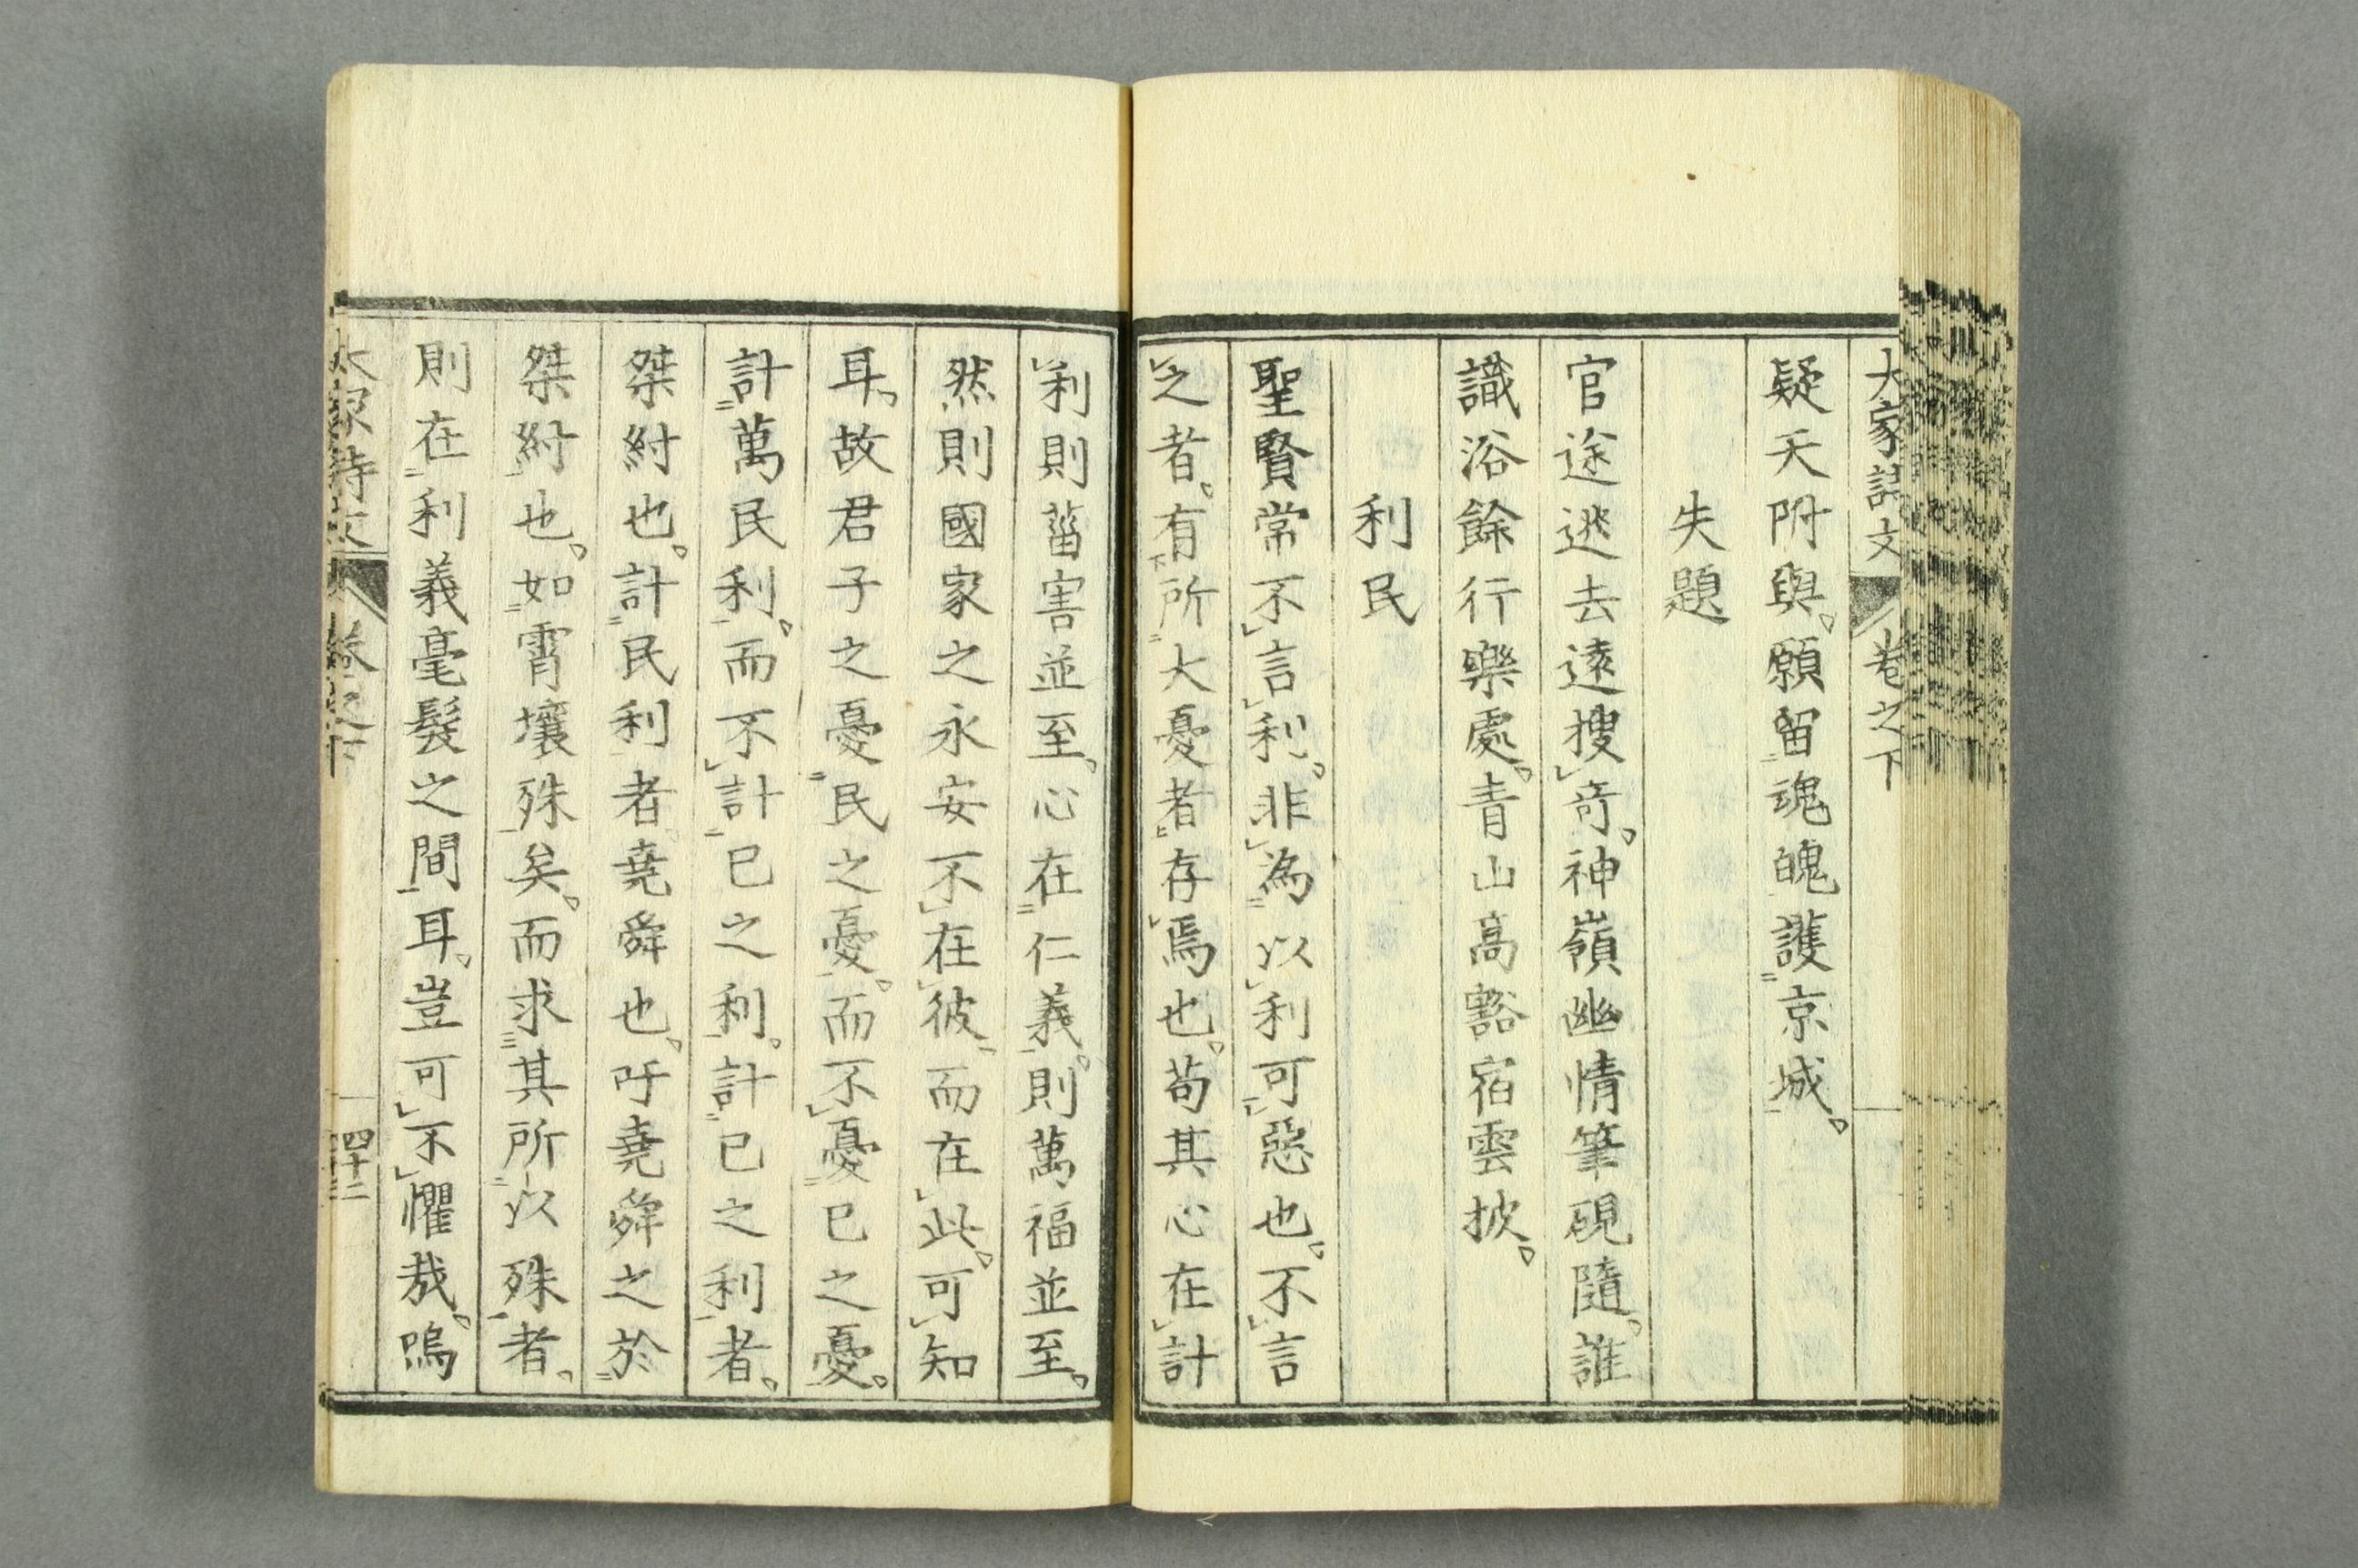 大家詩文 卷之下
疑天所與。願留魂魄護京城。
失題
官途逃去遠搜奇。神嶺幽情筆硯隨。誰
識浴餘行樂處。青山高豁宿雲披。
利民
聖賢常不言利。非為以利可惡也。不言
之者。有所大憂者存焉也。苟其心在計
利則菑害並至。心在仁義。則萬福並至。
然則國家之永安不在彼而在此。可知
耳。故君子之憂民之憂。而不憂已之憂。
計萬民利。而不計已之利。計已之利者。
桀紂也。計民利者堯舜也。吁堯舜之於
桀紂也。如霄壤殊矣。而求其所以殊者。
則在利義毫髮之間耳。豈可不懼哉。嗚
大家詩文 卷之下 四十二